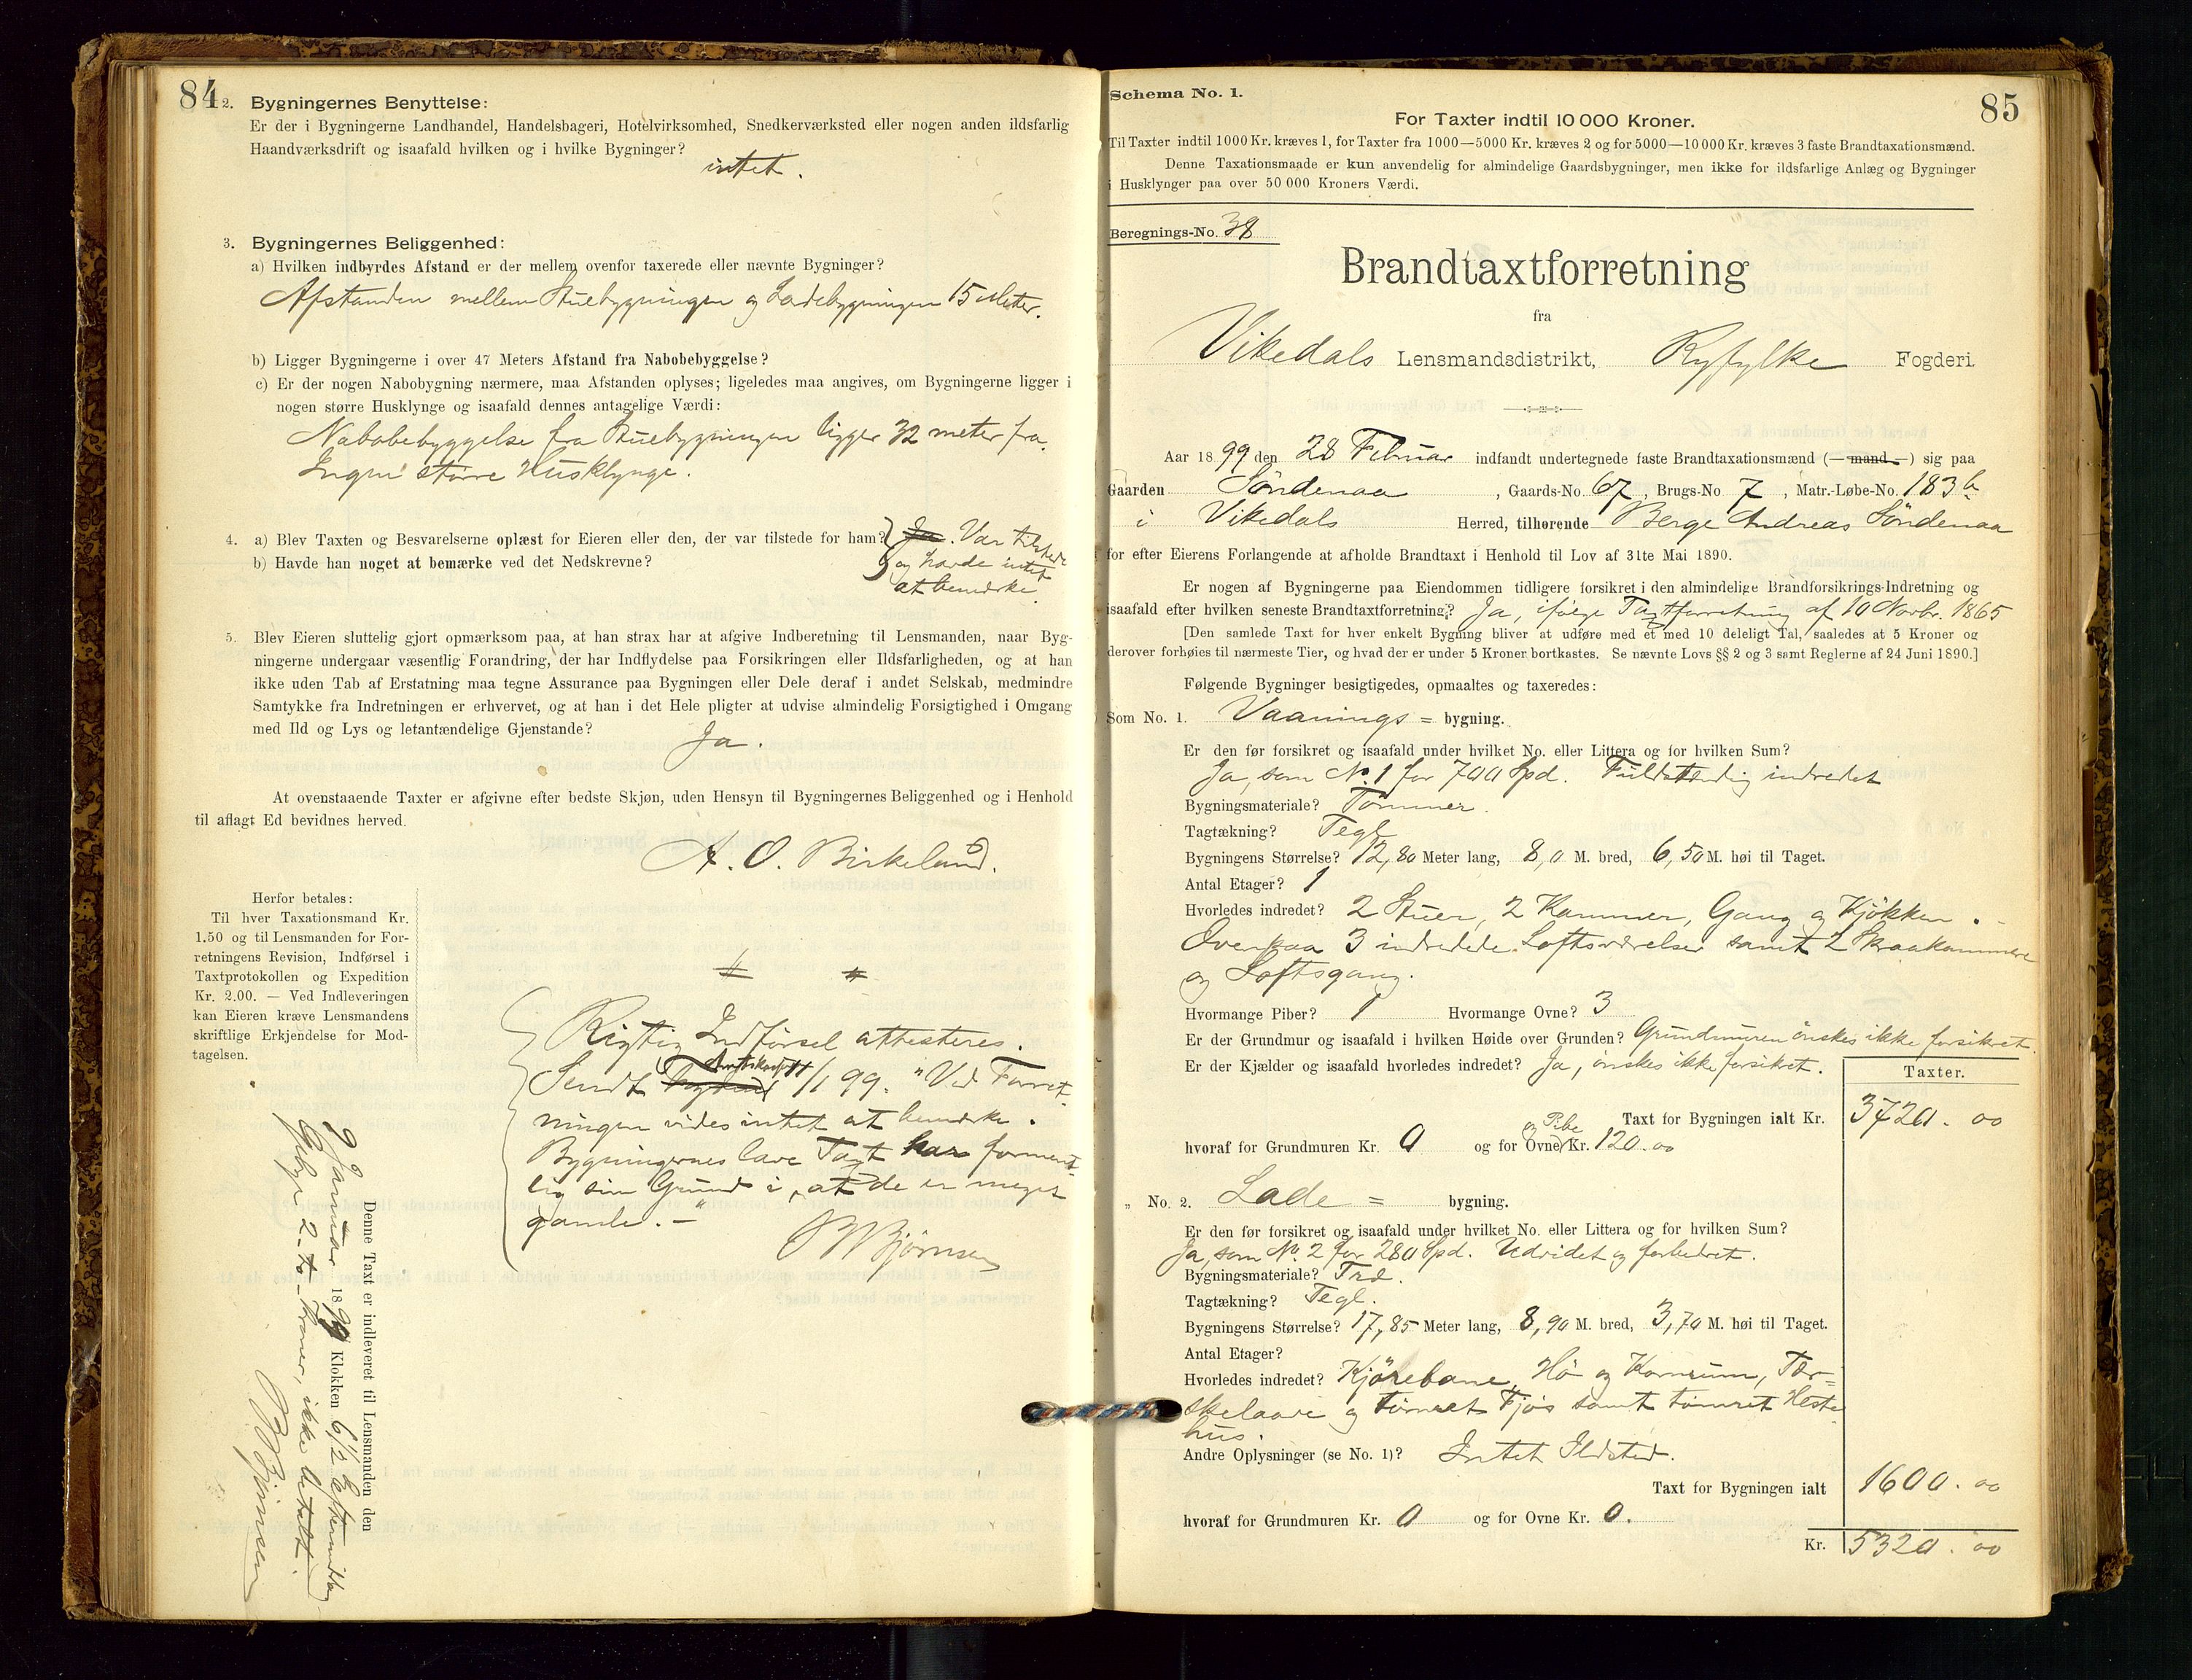 84
2. Bygningernes Benyttelse:
Er der i Bygningerne Landhandel, Handelsbageri, Hotelvirksomhed, Snedkerværksted eller nogen anden ildsfarlig
Haandværksdrift og isaafald hvilken og i hvilke Bygninger?
intet.
3. Bygningernes Beliggenhed:
a) Hvilken indbyrdes Afstand er der mellem ovenfor taxerede eller nævnte Bygninger?
Afstanden mellem Stuebygningen og Ladebygningen 15 Meter.
b) Ligger Bygningerne i over 47 Meters Afstand fra Nabobebyggelse?
c) Er der nogen Nabobygning nærmere, maa Afstanden oplyses; ligeledes maa angives, om Bygningerne ligger i
nogen større Husklynge og isaafald dennes antagelige Værdi:
Nabobebyggelse fra Stuebygningen ligger 32 meter fra.
Ingen større Husklynge.
4. a) Blev Taxten og Besvarelserne oplæst for Eieren eller den, der var tilstede for ham? Ja. Var tilstede
b) Havde han noget at bemærke ved det Nedskrevne? og havde intet
at bemærke.
5. Blev Eieren sluttelig gjort opmærksom paa, at han strax har at afgive Indberetning til Lensmanden, naar Byg-
ningerne undergaar væsentlig Forandring, der har Indflydelse paa Forsikringen eller Ildsfarligheden, og at han
ikke uden Tab af Erstatning maa tegne Assurance paa Bygningen eller Dele deraf i andet Selskab, medmindre
Samtykke fra Indretningen er erhvervet, og at han i det Hele pligter at udvise almindelig Forsigtighed i Omgang
med Ild og Lys og letantændelige Gjenstande?
Ja.
At ovenstaaende Taxter er afgivne efter bedste Skjøn, uden Hensyn til Bygningernes Beliggenhed og i Henhold
til aflagt Ed bevidnes herved.
A. O. Birkeland.
Herfor betales:
Til hver Taxationsmand Kr.
1.50 og til Lensmanden for For-
retningens Revision, Indførsel i
Taxtprotokollen og Expedition
Kr. 2.00. — Ved Indleveringen
kan Eieren kræve Lensmandens
skriftlige Erkjendelse for Mod-
tagelsen.
Rigtig Indførsel attesteres.
Sendt 11/1 99. "Ved Forret-
ningen vides intet at bemærke.
Bygningernes lave Taxt har forment-
lig sin Grund i, at de er meget
gamle.—"
Bjørnsen
Denne Taxt er indleveret til Lensmanden den
9 Januar 1899 Klokken 6 1/2 Eftermiddag
Gebyr 2 - to - Kroner, ikke betalt.
Bjørnsen
Schema No. 1.
85
For Taxter indtil 10 000 Kroner.
Til Taxter indtil 1000 Kr. kræves 1, for Taxter fra 1000—5000 Kr. kræves 2 og for 5000—10 000 Kr. kræves 3 faste Brandtaxationsmænd.
Denne Taxationsmaade er kun anvendelig for almindelige Gaardsbygninger, men ikke for ildsfarlige Anlæg og Bygninger
i Husklynger paa over 50 000 Kroners Værdi.
Beregnings-No. 38
Brandtaxtforretning
fra
Vikedals Lensmandsdistrikt, Ryfylke Fogderi.
Aar 1899 den 28 Februar indfandt undertegnede faste Brandtaxationsmænd (—mand—) sig paa
Gaarden Söndenaa, Gaards-No. 67, Brugs-No 7, Matr.-Løbe-No. 183 b
i Vikedals Herred, tilhørende Berge Andreas Söndenaa
for efter Eierens Forlangende at afholde Brandtaxt i Henhold til Lov af 31te Mai 1890.
Er nogen af Bygningerne paa Eiendommen tidligere forsikret i den almindelige Brandforsikrings-Indretning og
isaafald efter hvilken seneste Brandtaxtforretning? Ja, ifølge Taxtforretning af 10 Novbr. 1865
[Den samlede Taxt for hver enkelt Bygning bliver at udføre med et med 10 deleligt Tal, saaledes at 5 Kroner og
derover forhøies til nærmeste Tier, og hvad der er under 5 Kroner bortkastes. Se nævnte Lovs §§ 2 og 3 samt Reglerne af 24 Juni 1890.]
Følgende Bygninger besigtigedes, opmaaltes og taxeredes:
Som No. 1. Vaanings = bygning.
Er den før forsikret og isaafald under hvilket No. eller Littera og for hvilken Sum?
Ja, som No. 1 for 700 Spd. Fuldstændig indredet
Bygningsmateriale? Tömmer.
Tagtækning? Tegl
Bygningens Størrelse? 12,80 Meter lang, 8,0 M. bred, 6,50 M. høi til Taget.
Antal Etager? 1
Hvorledes indredet? 2 Stuer, 2 Kammer, Gang og Kjökken.
Ovenpaa 3 indredede Loftsværelser samt 2 Skraakammere
og Loftsgang.
Hvormange Piber? 1 Hvormange Ovne? 3
Er der Grundmur og isaafald i hvilken Høide over Grunden? Grundmuren önskes ikke forsikret.
Er der Kjælder og isaafald hvorledes indredet? Ja, önskes ikke forsikret.
Taxter.
Taxt for Bygningen ialt Kr. 3720. 00
hvoraf for Grundmuren Kr. 0 og for Ovne og Pibe Kr. 120.00
„ No. 2. Lade = bygning.
Er den før forsikret og isaafald under hvilket No. eller Littera og for hvilken Sum?
Ja, som No. 2 for 280 Spd. Udvidet og forbedret.
Bygningsmateriale? Træ.
Tagtækning? Tegl.
Bygningens Størrelse? 17,85 Meter lang, 8,90 M. bred, 3,70 M. høi til Taget.
Antal Etager?
Hvorledes indredet? Kjörebane, Hö og Kornrum, Tær-
skelaave og tömret Fjös samt tömret Heste-
hus.
Andre Oplysninger (se No. 1)? Intet Ildsted.
Taxt for Bygningen ialt 1600. 00
hvoraf for Grundmuren Kr. 0 og for Ovne Kr. 0.
Kr. 5320. 00